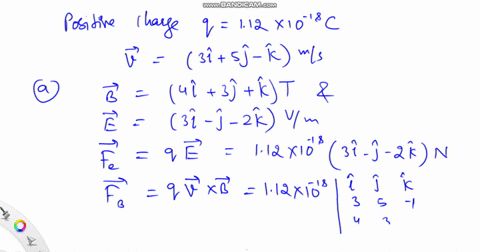 WWW.BANDICAM.COM
Positive charge q = 1.12 × 10⁻¹⁸ C
v⃗ = (3î + 5ĵ - k̂) m/s
(a) B⃗ = (4î + 3ĵ + k̂) T &
E⃗ = (3î - ĵ - 2k̂) V/m
F⃗e = q E⃗ = 1.12 × 10⁻¹⁸ (3î - ĵ - 2k̂) N
F⃗B = q v⃗ × B⃗ = 1.12 × 10⁻¹⁸ | î ĵ k̂
3 5 -1
4 3